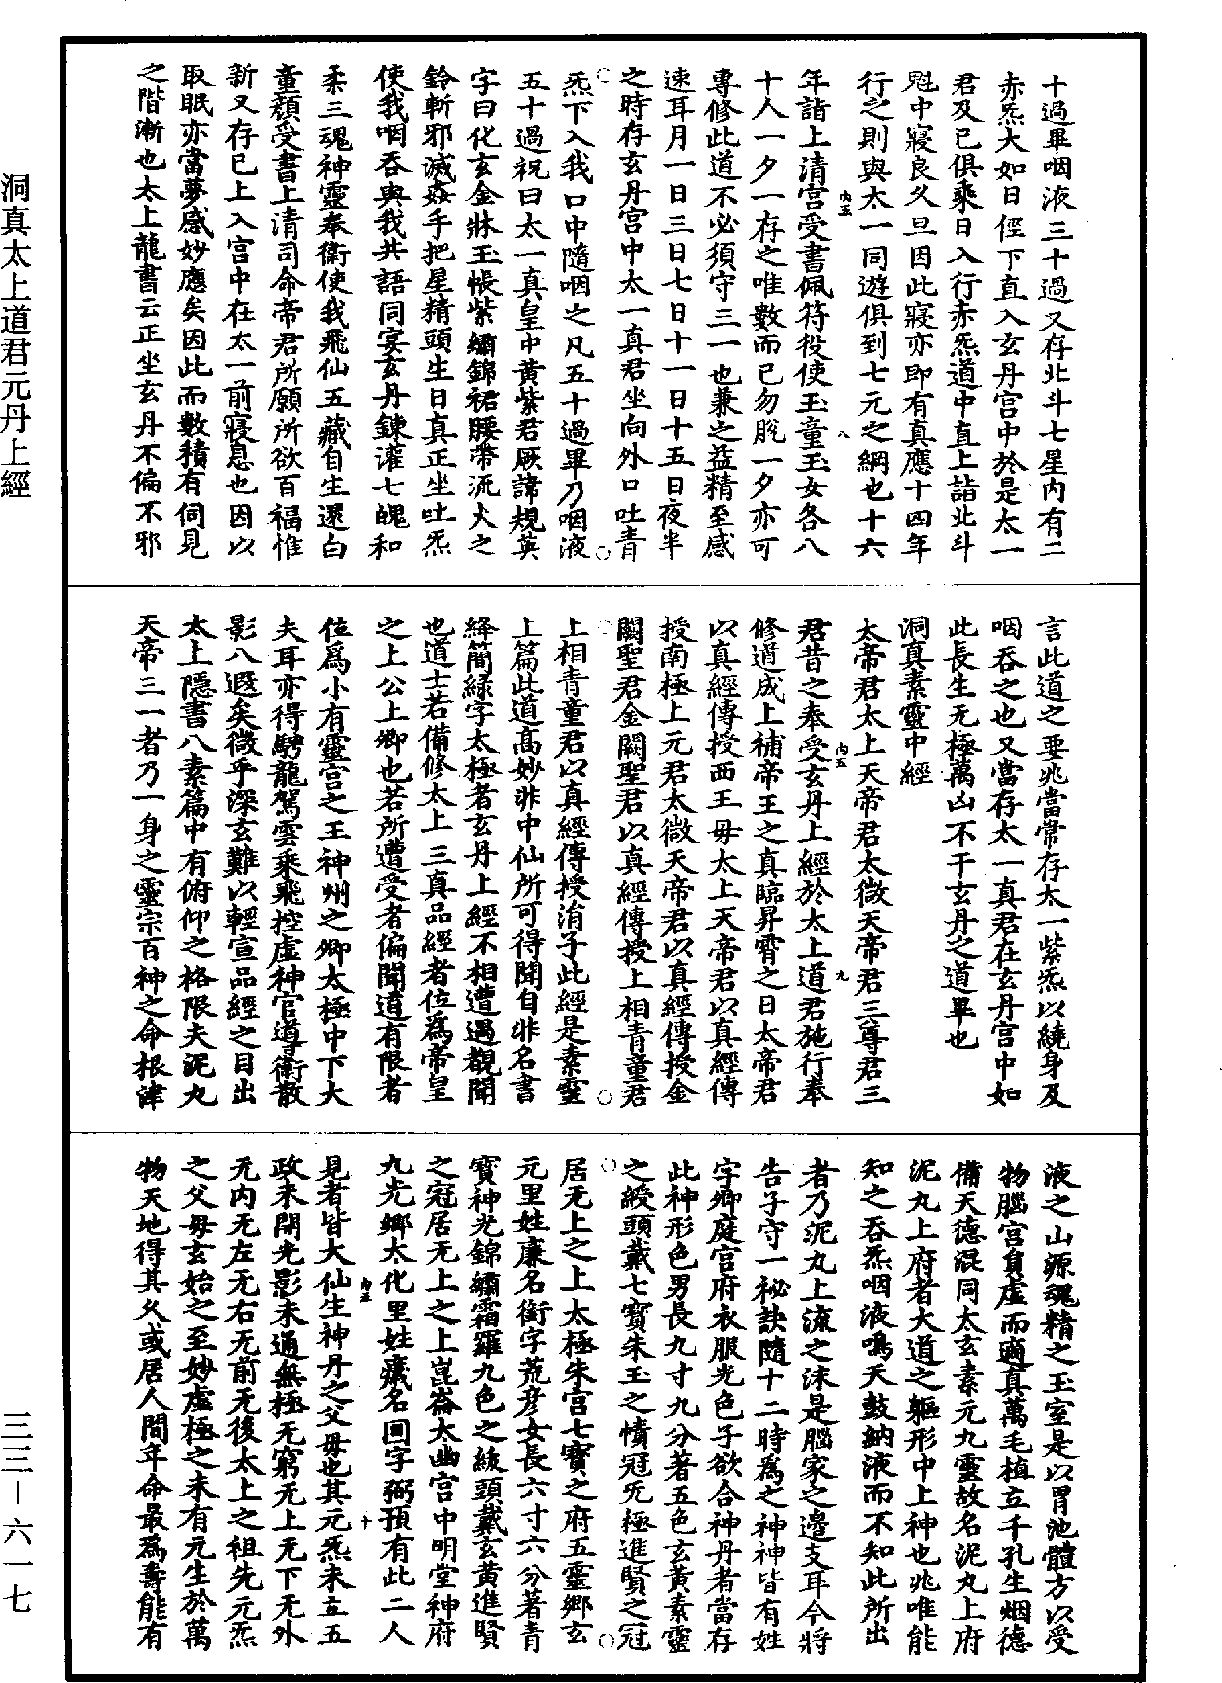 十過畢咽液三十過又存北斗七星内有二
赤炁大如日徑下直入玄丹宫中於是太一
君及已俱乘日入行赤炁道中直上詣北斗
魁中寢良久旦因此寢亦即有真應十四年
行之則與太一同遊俱到七元之綱也十六
年詣上清宫受書佩符役使玉童玉女各八
十人一夕一存之唯數而已勿脫一夕亦可
專修此道不必須守三一也兼之益精至感
速耳月一日三日七日十一日十五日夜半
之時存玄丹宫中太一真君坐向外口吐青
炁下入我口中隨咽之凡五十過畢乃咽液
五十過祝曰太一真皇中黄紫君厥諱規英
字曰化玄金牀玉帳紫繡錦裙腰帶流火之
鈴斬邪滅姦手把星精頭生日真正坐吐炁
使我咽吞與我共語同宴玄丹鍊灌七魄和
柔三魂神靈奉衛使我飛仙五藏自生還白
童顏受書上清司命帝君所願所欲百福惟
新又存已上入宫中在太一前寢息也因以
取眠亦當夢感妙應矣因此而數積有伺見
之階漸也太上龍書云正坐玄丹不偏不邪
言此道之要兆當常存太一紫炁以繞身及
咽吞之也又當存太一真君在玄丹宫中如
此長生无極萬凶不干玄丹之道畢也
洞真素靈中經
太帝君太上天帝君太微天帝君三尊君三
君昔之奉受玄丹上經於太上道君施行奉
修道成上補帝王之真臨昇霄之日太帝君
以真經傳授西王母太上天帝君以真經傳
授南極上元君太微天帝君以真經傳授金
闕聖君金闕聖君以真經傳授上相青童君
上相青童君以真經傳授涓子此經是素靈
上篇此道高妙非中仙所可得聞自非名書
絳簡緑字太極者玄丹上經不相遭遇觀聞
也道士若備修太上三真品經者位爲帝皇
之上公上卿也若所遭受者偏聞道有限者
位爲小有靈宫之王神州之卿太極中下大
夫耳亦得騁龍駕雲乘飛控虚神官導衛散
影八遐矣微乎深玄難以輕宣品經之目出
太上隱書八素篇中有俯仰之格限夫泥丸
天帝三一者乃一身之靈宗百神之命根津
液之山源魂精之玉室是以胃池體方以受
物腦宫員虚而適真萬毛植立千孔生烟德
備天德混同太玄素元九靈故名泥丸上府
泥丸上府者大道之軀形中上神也兆唯能
知之吞炁咽液鳴天鼓納液而不知此所出
者乃泥丸上流之沫是腦家之邊支耳今將
告子守一秘訣隨十二時爲之神神皆有姓
字卿庭宫府衣服光色子欲合神丹者當存
此神形色男長九寸九分著五色玄黄素靈
之綬頭戴七寶朱玉之幘冠无極進賢之冠
居无上之上太極朱宫七寶之府五靈鄉玄
元里姓廉名銜字荒彦女長六寸六分著青
寶神光錦繡霜羅九色之綬頭戴玄黄進賢
之冠居无上之上崑崙太幽宫中明堂神府
九光鄉太化里姓藏名回字弼預有此二人
見者皆大仙生神丹之父母也其元炁未立五
政未開光影未通無極无窮无上无下无外
无内无左无右无前无後太上之祖先元炁
之父母玄始之至妙虚極之未有元生於萬
物天地得其久或居人間年命最爲壽能有
洞真太上道君元丹上經
三三－六一七
内五
八
内五
九
内五
十